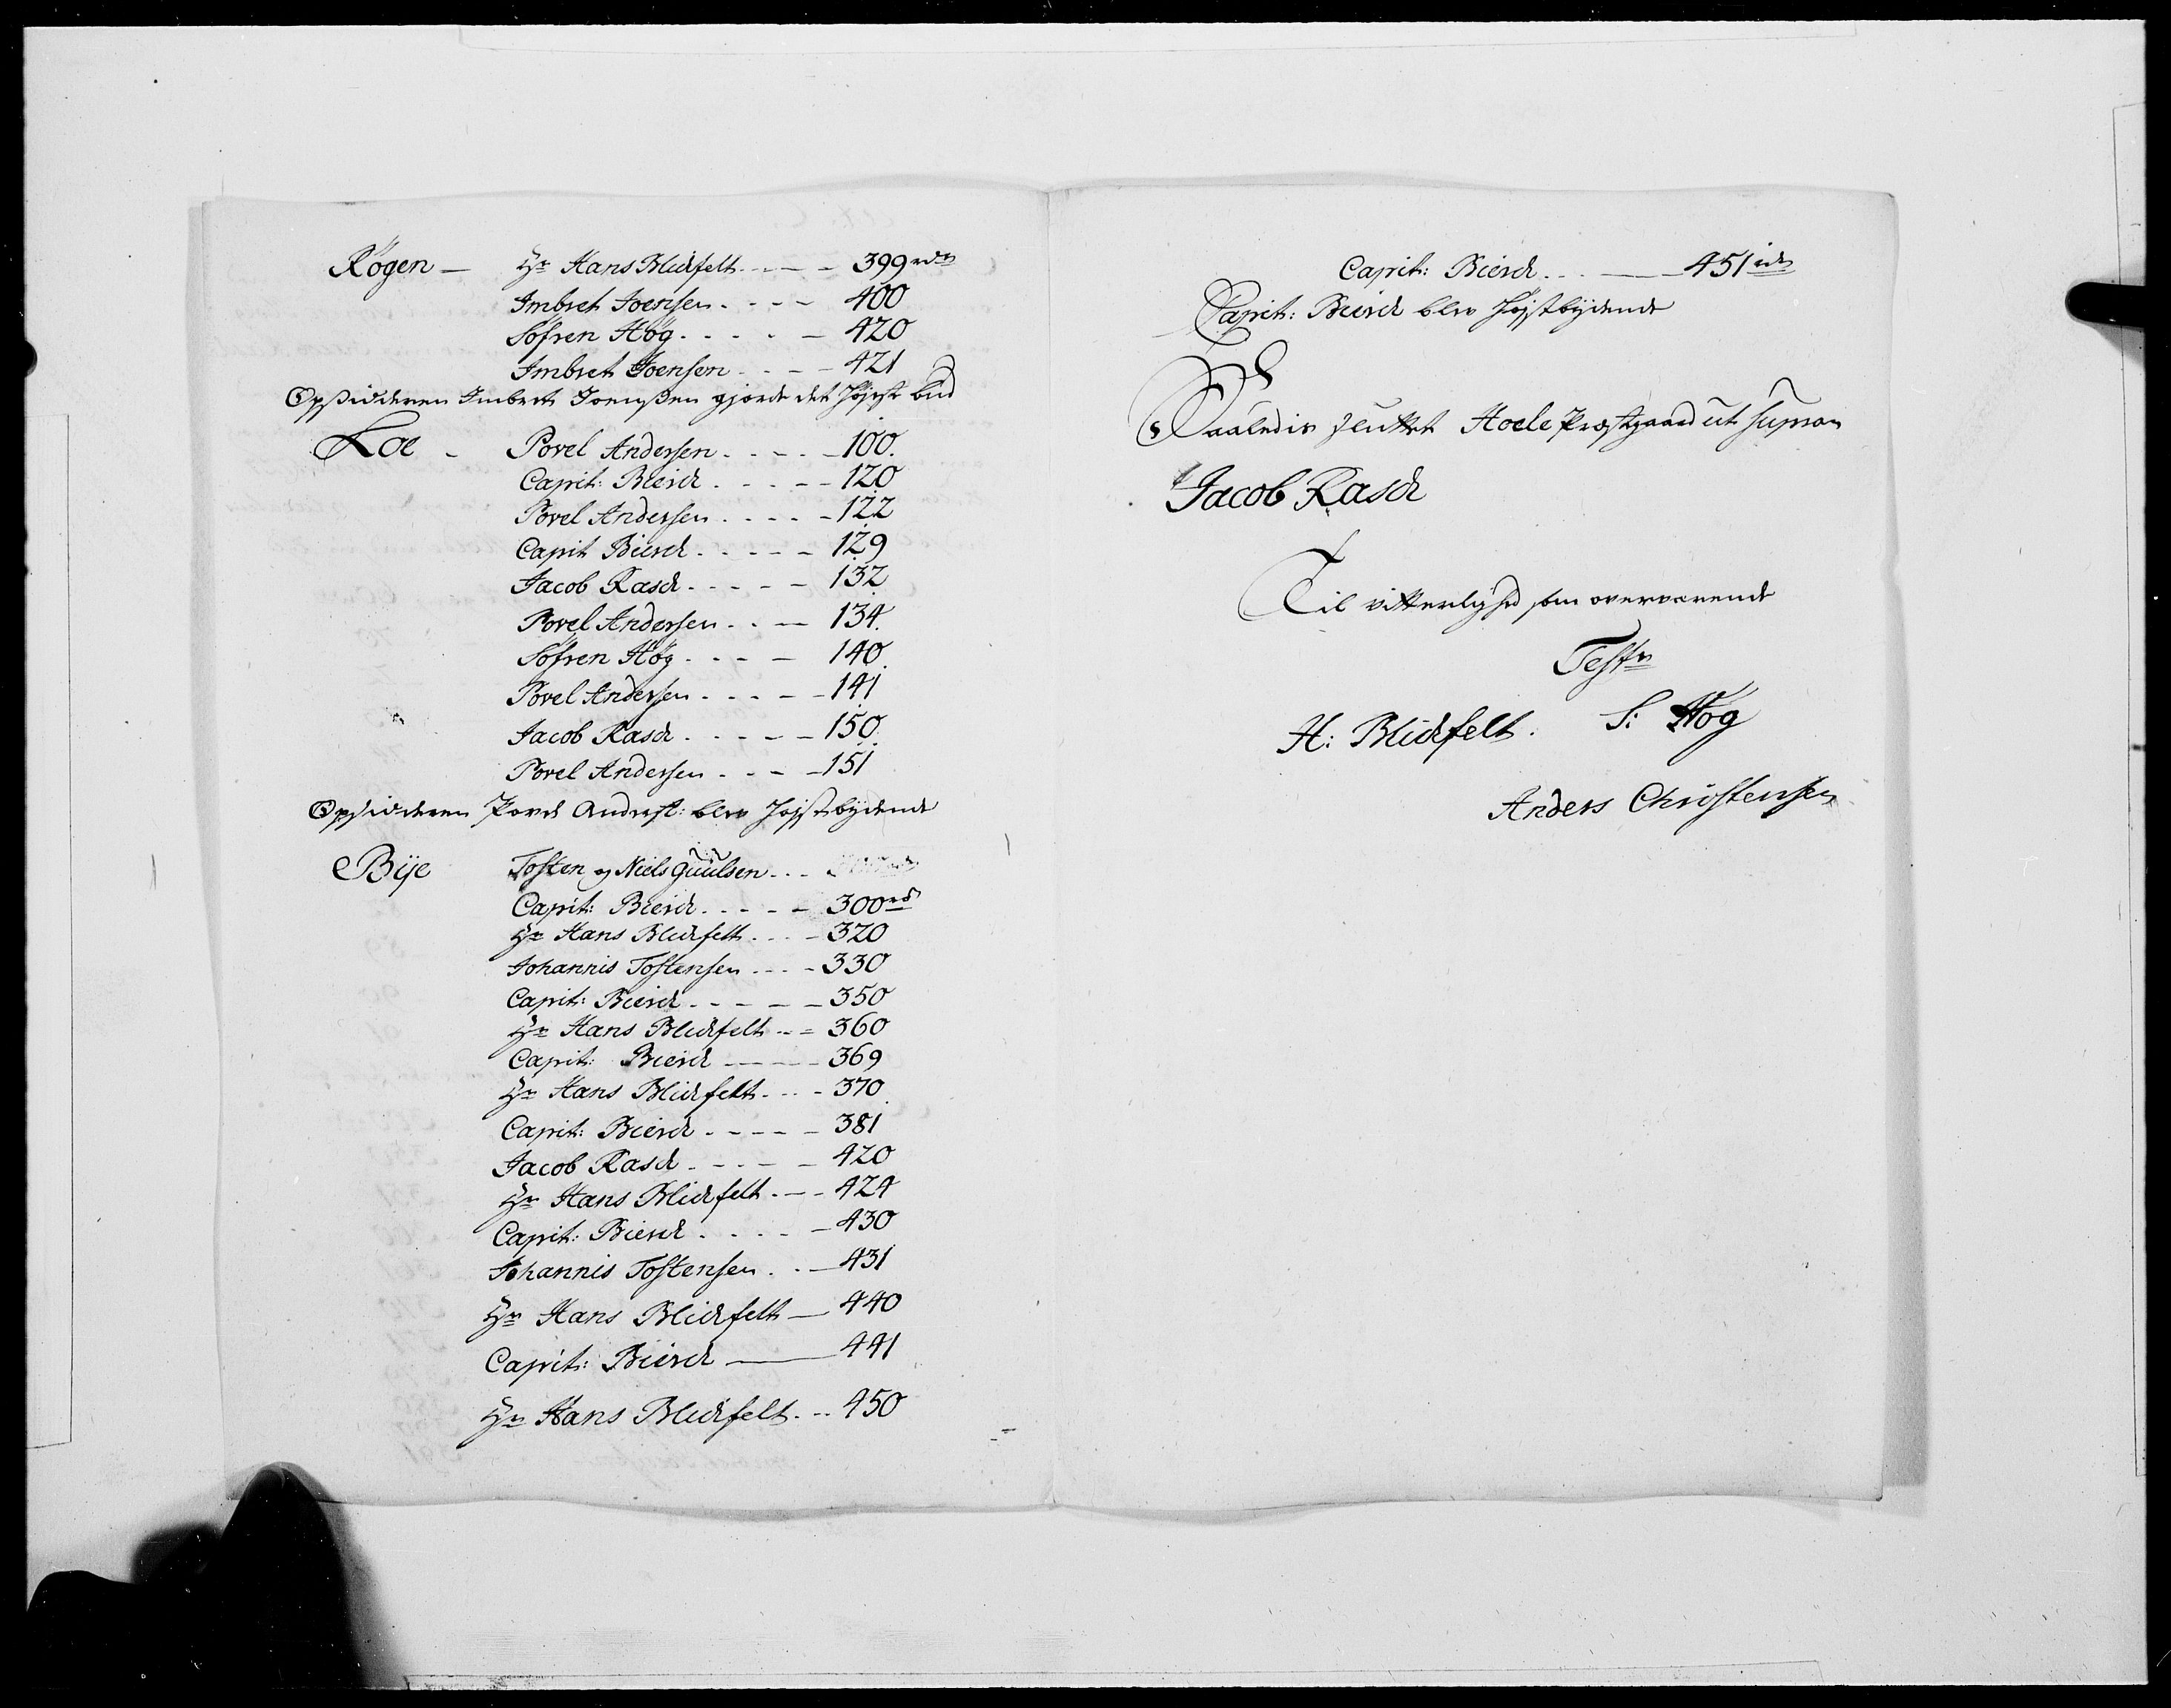 Røgen — Hr Hans Blickfelt - - - - 399 rdr
Imbret Joensen - - - - 400
Søfren Høg - - - - 420
Imbret Joensen - - - - 421
Opsidderen Imbret Joensen gjorde det Højest bud
Loe - Povel Andersen - - - - 100.
Capit: Bierch - - - - 120
Povel Andersen - - - - 122
Capit Bierch - - - - 129
Jacob Rasch - - - - 132
Povel Andersen - - - 134.
Søfren Høg - - - - 140
Povel Andersen - - - - 141
Jacob Rasch - - - - 150
Povel Andersen - - - 151
Opsidderen Povel Anders: blev Højstbydende
Bÿe Tosten og Niels Guulsen - - -
Capit: Bierch - - - - 300 rd
Hr Hans Blickfelt - - - 320
Johannis Tostensen - - - 330
Capit: Bierch - - - - 350
Hr Hans Blickfelt - - - 360
Capit: Bierch - - - - 369
Hr Hans Blickfelt - - - 370
Capit: Bierch - - - - 381
Jacob Rasch - - - - 420
Hr Hans Blickfelt - - - 424
Capit: Bierch - - - - 430
Johannis Tostensen - - - 431
Hr Hans Blickfelt — 440
Capit: Bierch — 441
Hr Hans Blickfelt - - - 450
Capit: Bierch - - — 451 rdr
Capit: Bierch blev Højstbydende
Saaledis sluttet Hoele Præstgaard ut supra
Jacob Rasch
Til vitterlighed som overværende
Test
H: Blickfelt. S: Høg
Anders Christensen